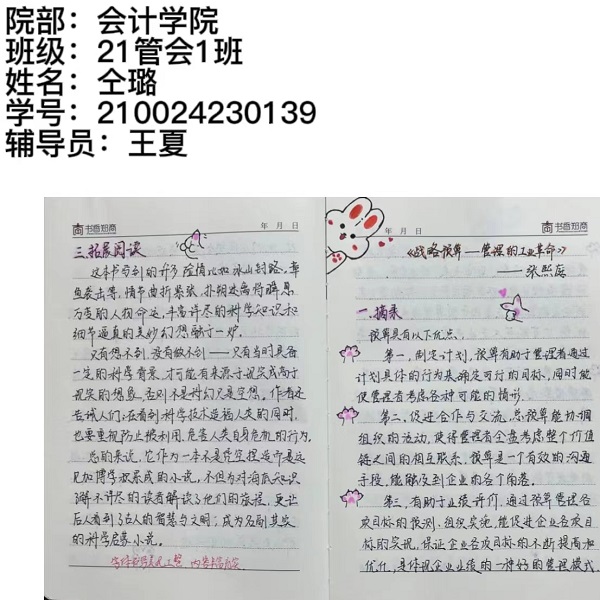 院部：会计学院
班级：21管会1班
姓名：仝璐
学号：210024230139
辅导员：王夏
书香知商
年 月 日
三.拓展阅读
这本书写到的许多陆情北如冰山封路、章
鱼袭击等，情节曲折紧张，扑朔迷离，瞬息
万变的人物命运，丰富详尽的科学知识和
细节逼真的美妙幻想融于一炉。
只有想不到，没有做不到——只有当时具备
一定的科学背景，才可能有来源于现实或高于
现实的想象，否则不是科幻只是空想。作者还
告诫人们：在看到科学技术造福人类的同时，
也要重视防止被利用、危害人类自身危机的行为。
总的来说，它作为一本不是凭空捏造而是远
见加博学积累成的小说，不但为对海底知识
了解不详尽的读者解读了他们的旅程，更让
后人看到了古人的智慧与文明；成为名副其实
的科学启蒙小说。
字体书写 工整 内容丰富
年 月 日
书香知商
《战略预算—管理的工业革命》
——张照庭
一.摘录
预算具有以下优点、
第一，制定计划，预算有助于管理者通过
计划具体的行为来确定可行的目标，同时能
使管理者考虑各种可能的情形。
第二，促进合作与交流，总预算能协调
组织的活动，使得管理者全盘考虑整个价值
链之间的相互联系，预算是一个有效的沟通
手段，能触及到企业的各个角落。
第三，有助于业绩评价，通过预算管理各
项目标的预测、组织实施，能促进企业各项目
标的实现，保证企业各项目标的不断提高和
优化，具体现企业业绩的一种好的管理模式。